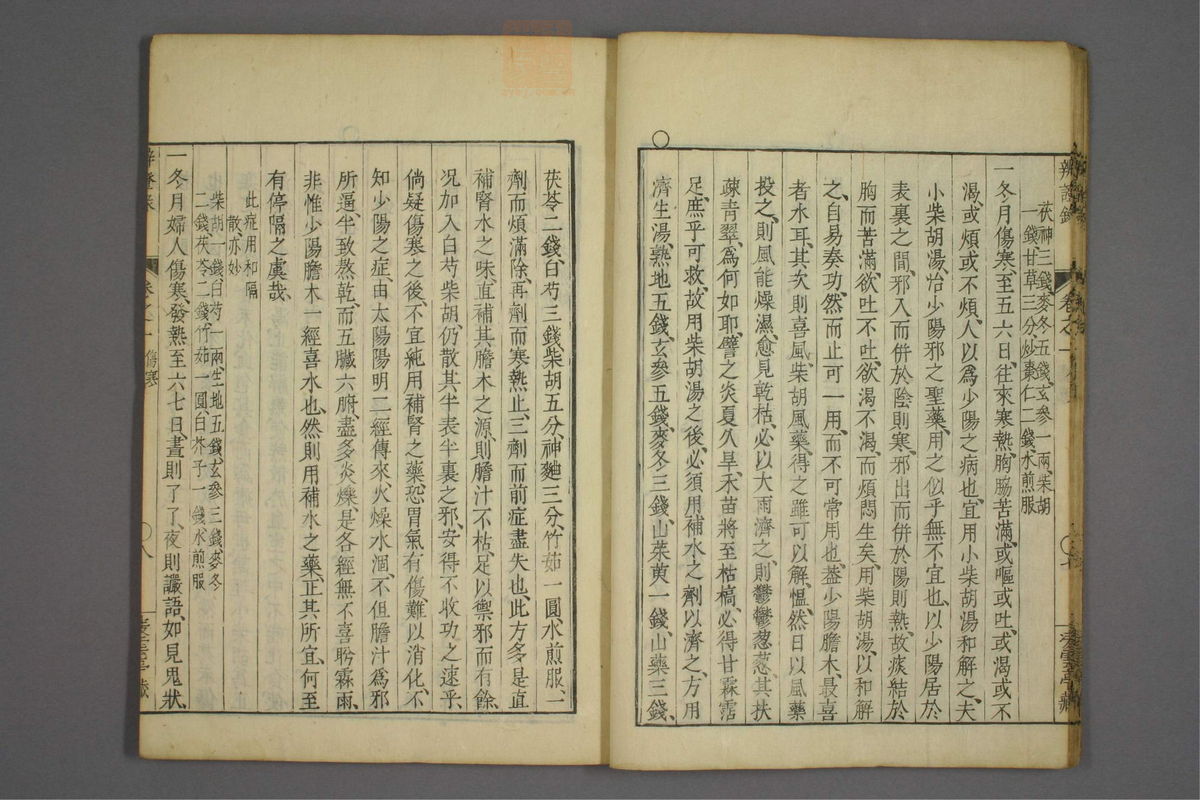 辨證錄
卷之一
茯神三錢麥冬五錢玄參一兩柴胡
一錢甘草三分炒棗仁二錢水煎服
一冬月傷寒至五六日往來寒熱胸脇苦滿或嘔或吐或渴或不
渴或煩或不煩人以爲少陽之病也宜用小柴胡湯和解之夫
小柴胡湯治少陽邪之聖藥用之似乎無不宜也以少陽居於
表裏之間邪入而併於陰則寒邪出而併於陽則熱故痰結於
胸而苦滿欲吐不吐欲渴不渴而煩悶生矣用柴胡湯以和解
之自易奏功然而止可一用而不可常用也蓋少陽膽木最喜
者水耳其次則喜風柴胡風藥得之雖可以解慍然日以風藥
投之則風能燥濕愈見乾枯必以大雨濟之則鬱鬱蔥蔥其扶
疎青翠爲何如耶譬之炎夏久旱禾苗將至枯槁必得甘霖霑
足庶乎可救故用柴胡湯之後必須用補水之劑以濟之方用
濟生湯熟地五錢玄參五錢麥冬三錢山茱萸一錢山藥三錢
茯苓二錢白芍三錢柴胡五分神麯三分竹茹一圓水煎服一
劑而煩滿除再劑而寒熱止三劑而前症盡失也此方多是直
補腎水之味直補其膽木之源則膽汁不枯足以禦邪而有餘
况加入白芍柴胡仍散其半表半裏之邪安得不收功之速乎
倘疑傷寒之後不宜純用補腎之藥恐胃氣有傷難以消化不
知少陽之症由太陽陽明二經傳來火燥水涸不但膽汁爲邪
所逼半致熬乾而五臟六腑盡多炎燥是各經無不喜盻霖雨
非惟少陽膽木一經喜水也然則用補水之藥正其所宜何至
有停隔之虞哉
此症用和隔
散亦妙
柴胡一錢白芍一兩生地五錢玄參三錢麥冬
二錢茯苓二錢竹茹一圓白芥子一錢水煎服
一冬月婦人傷寒發熱至六七日晝則了了夜則讝語如見鬼狀
卷之一 傷寒
八